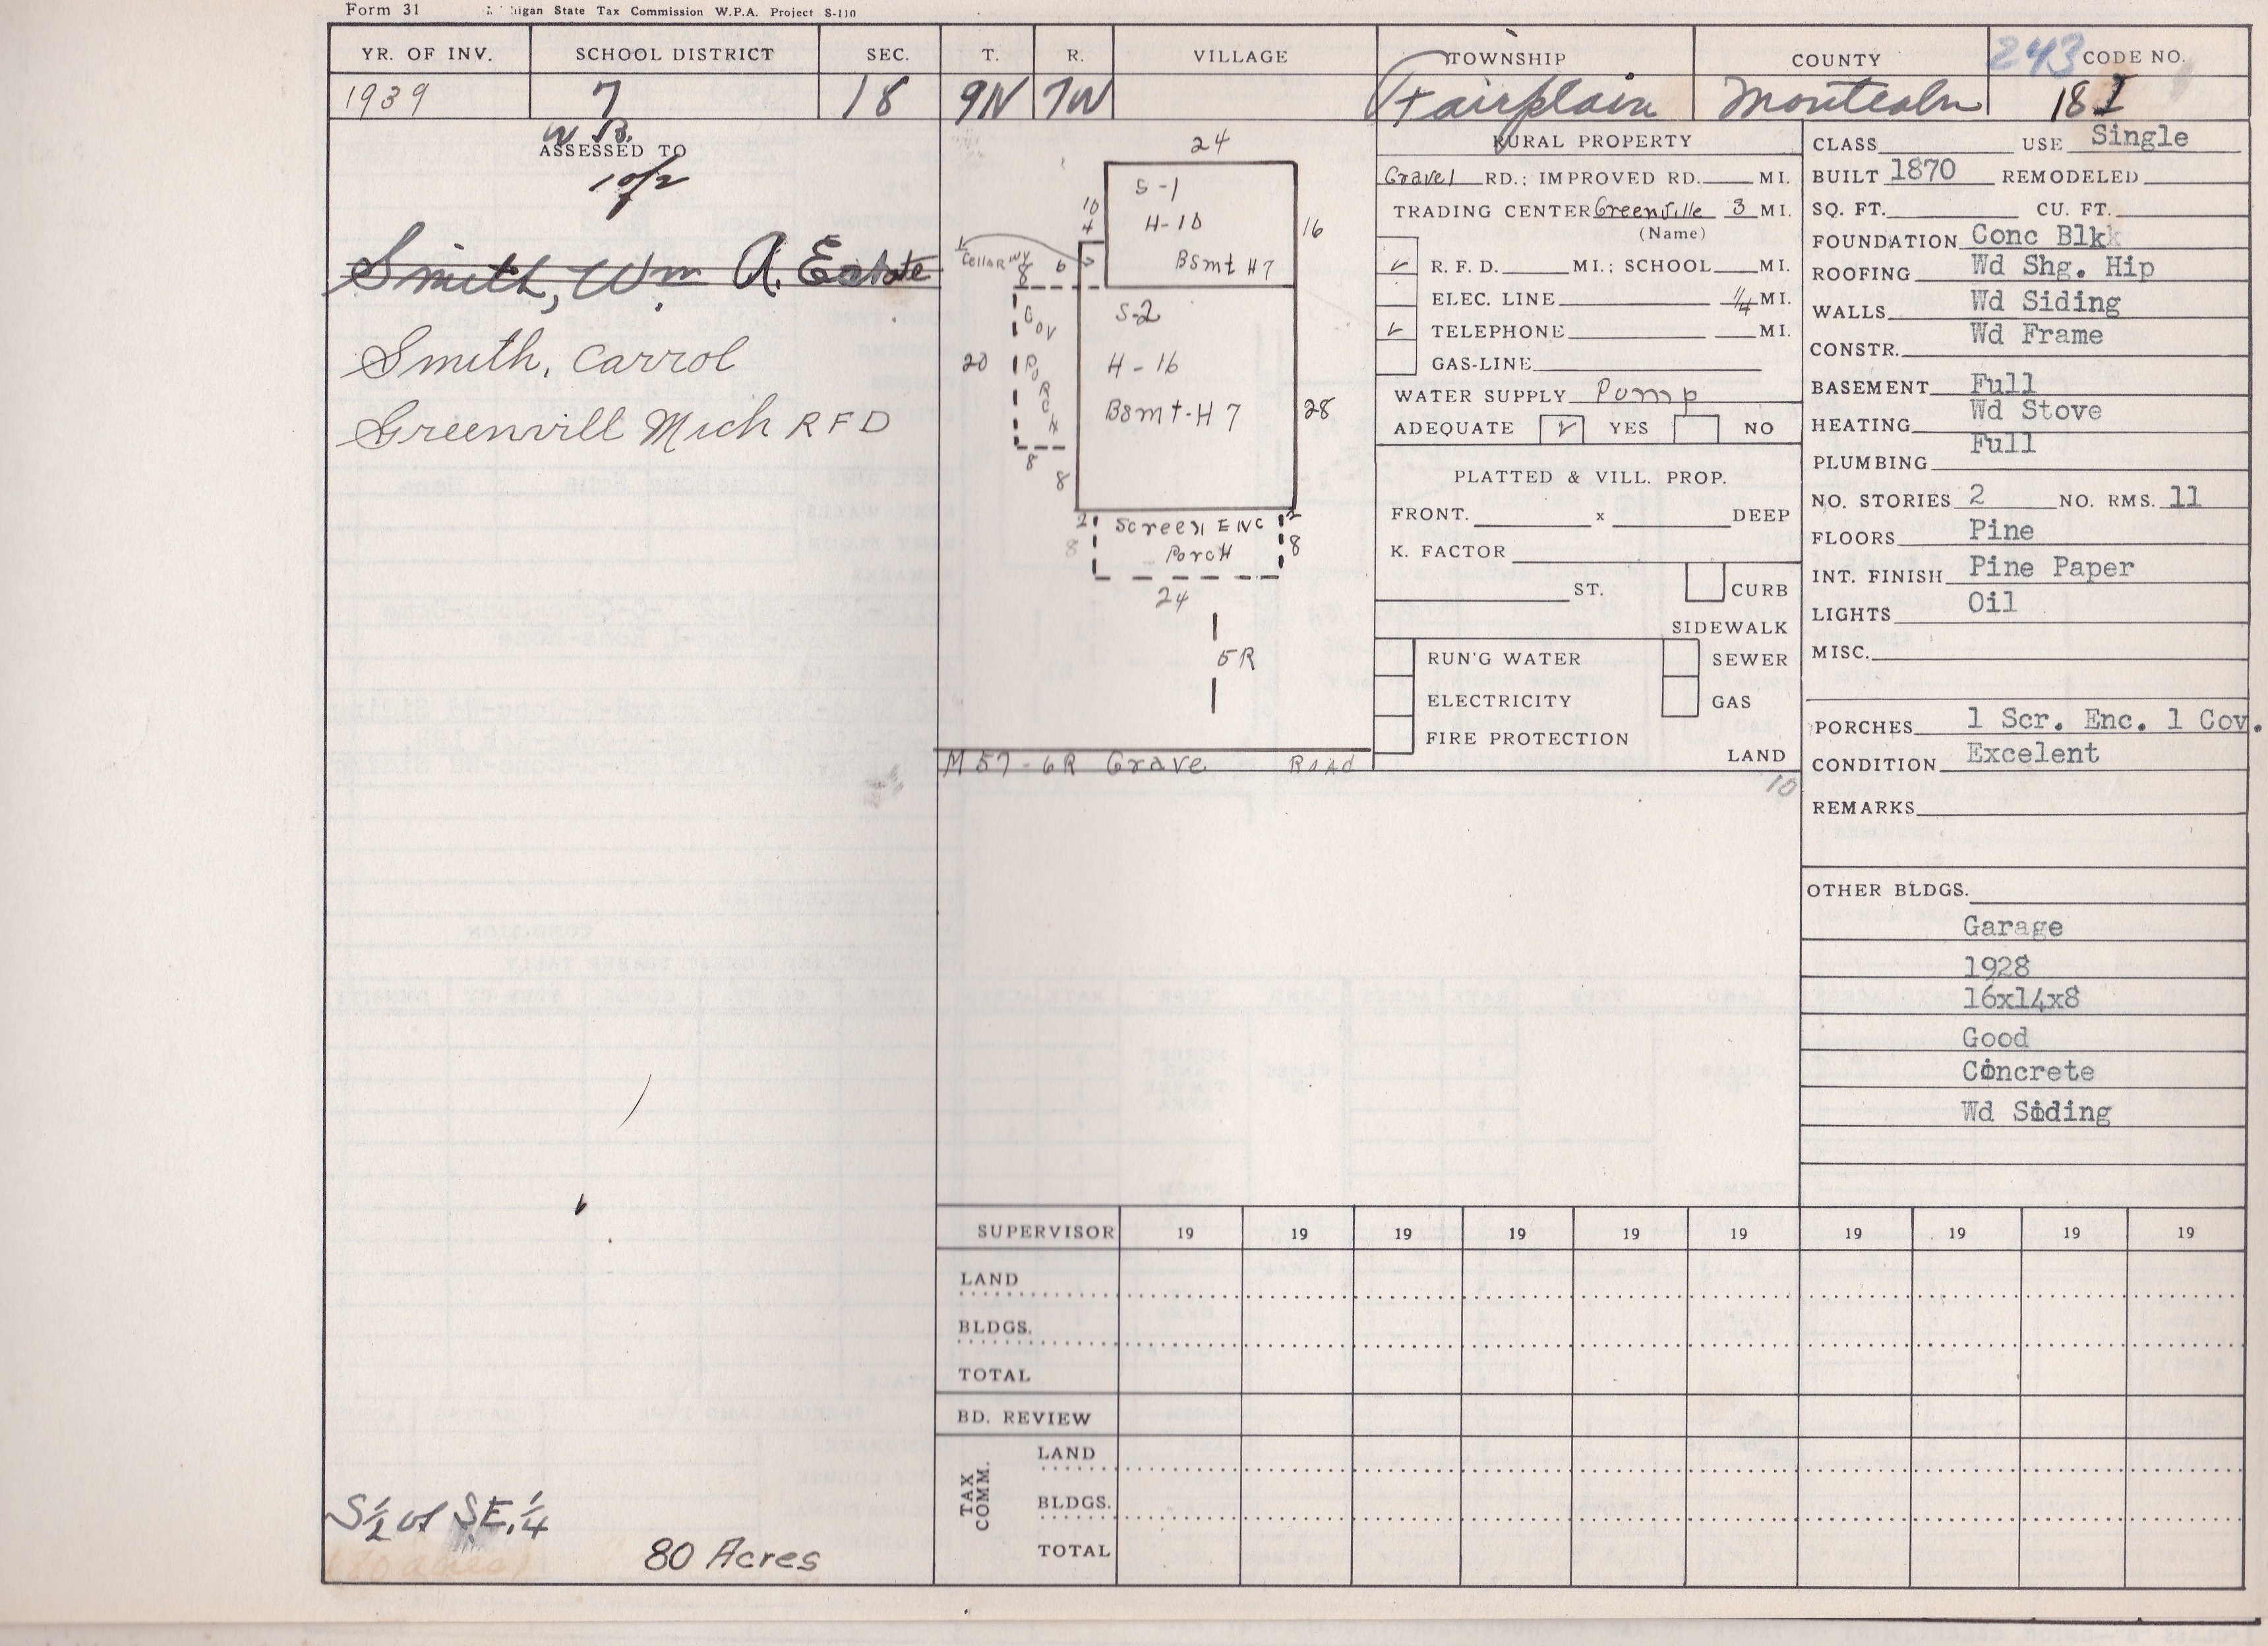 Form 31 higan State Tax Commission W.P.A. Project S-110
YR. OF INV. SCHOOL DISTRICT SEC. T. R. VILLAGE TOWNSHIP COUNTY 243 CODE NO.
1939 7 18 9N 7W Fairplain Montcalm 18 I
W B.
ASSESSED TO
Smith, Wm A. Estate
Smith, Carrol
Greenvill Mich R F D
S 1/2 of SE. 1/4
80 Acres
24
S-1
H-10
Bsmt H7
10
4
16
Cellar WY
8 6
S-2
H-16
Bsmt-H7
COV
PORCH
20
28
8
8
2 2
Screen ENC
Porch
8 8
24
5R
M57-6R Grave Road
RURAL PROPERTY
Gravel RD.; IMPROVED RD. MI.
TRADING CENTER Greenville 3 MI.
(Name)
✓ R. F. D. MI.; SCHOOL MI.
ELEC. LINE 1/4 MI.
✓ TELEPHONE MI.
GAS-LINE
WATER SUPPLY Pump
ADEQUATE ✓ YES NO
PLATTED & VILL. PROP.
FRONT. x DEEP
K. FACTOR
ST. CURB
SIDEWALK
RUN'G WATER SEWER
ELECTRICITY GAS
FIRE PROTECTION
LAND
10
CLASS USE Single
BUILT 1870 REMODELED
SQ. FT. CU. FT.
FOUNDATION Conc Blkk
ROOFING Wd Shg. Hip
WALLS Wd Siding
CONSTR. Wd Frame
BASEMENT Full
HEATING Wd Stove
PLUMBING Full
NO. STORIES 2 NO. RMS. 11
FLOORS Pine
INT. FINISH Pine Paper
LIGHTS Oil
MISC.
PORCHES 1 Scr. Enc. 1 Cov.
CONDITION Excelent
REMARKS
OTHER BLDGS.
Garage
1928
16x14x8
Good
Concrete
Wd Siding
SUPERVISOR 19 19 19 19 19 19 19 19 19 19
LAND
BLDGS.
TOTAL
BD. REVIEW
TAX COMM.
LAND
BLDGS.
TOTAL